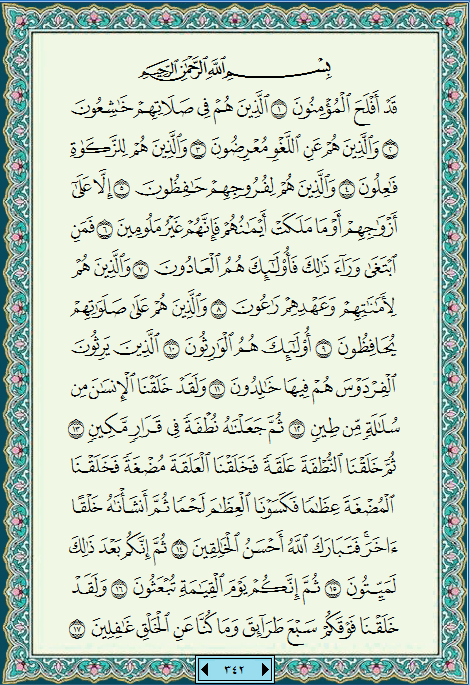 بِسْمِ اللَّهِ الرَّحْمَٰنِ الرَّحِيمِ
قَدْ أَفْلَحَ الْمُؤْمِنُونَ ١ الَّذِينَ هُمْ فِي صَلَاتِهِمْ خَاشِعُونَ
٢ وَالَّذِينَ هُمْ عَنِ اللَّغْوِ مُعْرِضُونَ ٣ وَالَّذِينَ هُمْ لِلزَّكَوٰةِ
فَاعِلُونَ ٤ وَالَّذِينَ هُمْ لِفُرُوجِهِمْ حَافِظُونَ ٥ إِلَّا عَلَىٰ
أَزْوَاجِهِمْ أَوْ مَا مَلَكَتْ أَيْمَانُهُمْ فَإِنَّهُمْ غَيْرُ مَلُومِينَ ٦ فَمَنِ
ابْتَغَىٰ وَرَآءَ ذَٰلِكَ فَأُولَٰئِكَ هُمُ الْعَادُونَ ٧ وَالَّذِينَ هُمْ
لِأَمَانَاتِهِمْ وَعَهْدِهِمْ رَاعُونَ ٨ وَالَّذِينَ هُمْ عَلَىٰ صَلَوَاتِهِمْ
يُحَافِظُونَ ٩ أُولَٰئِكَ هُمُ الْوَارِثُونَ ١٠ الَّذِينَ يَرِثُونَ
الْفِرْدَوْسَ هُمْ فِيهَا خَالِدُونَ ١١ وَلَقَدْ خَلَقْنَا الْإِنسَانَ مِن
سُلَالَةٍ مِّن طِينٍ ١٢ ثُمَّ جَعَلْنَاهُ نُطْفَةً فِي قَرَارٍ مَّكِينٍ ١٣
ثُمَّ خَلَقْنَا النُّطْفَةَ عَلَقَةً فَخَلَقْنَا الْعَلَقَةَ مُضْغَةً فَخَلَقْنَا
الْمُضْغَةَ عِظَامًا فَكَسَوْنَا الْعِظَامَ لَحْمًا ثُمَّ أَنشَأْنَاهُ خَلْقًا
ءَاخَرَ ۚ فَتَبَارَكَ اللَّهُ أَحْسَنُ الْخَالِقِينَ ١٤ ثُمَّ إِنَّكُم بَعْدَ ذَٰلِكَ
لَمَيِّتُونَ ١٥ ثُمَّ إِنَّكُمْ يَوْمَ الْقِيَامَةِ تُبْعَثُونَ ١٦ وَلَقَدْ
خَلَقْنَا فَوْقَكُمْ سَبْعَ طَرَآئِقَ وَمَا كُنَّا عَنِ الْخَلْقِ غَافِلِينَ ١٧
٣٤٢